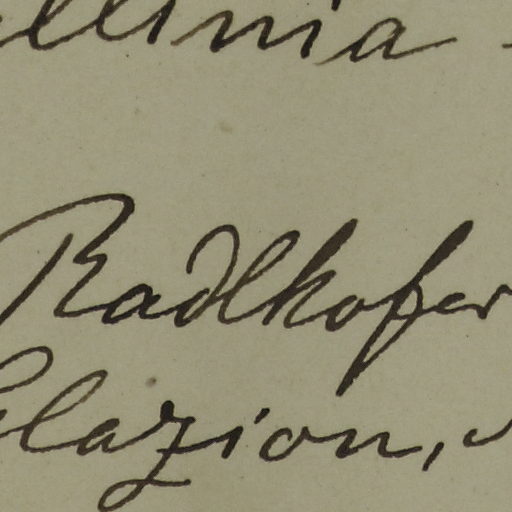 ellinia
Radlkofer
Glazion,